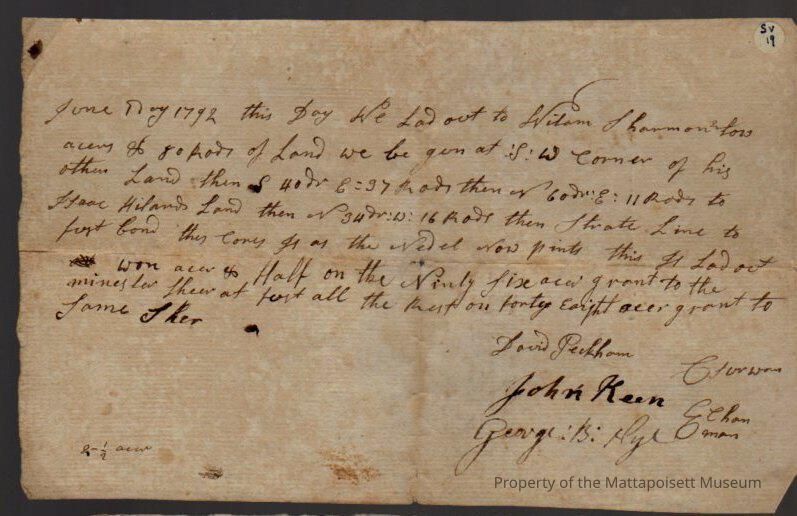 SV
19
June Day 1792 this Day We Lad out to Wilam Sharmon
acers & 80 Rods of Land we be gun at :S: W Corner of his
other Land then S 40dr E=37 Rods then N 60dr:E: 11 Rods to
Isaac Hilands Land then N 34dr:W: 16 Rods then Strate Line to
furst bond this Cors Is as the Nedel Now pints this Is Lad out
won acer & Half on the Ninty Six acer grant to the
minester Sheer at furst all the Rest on forty Eaight acer grant to
Same Sher
David Peckham
John Keen
George :B: Nye
2-1/2 acer
Property of the Mattapoisett Museum